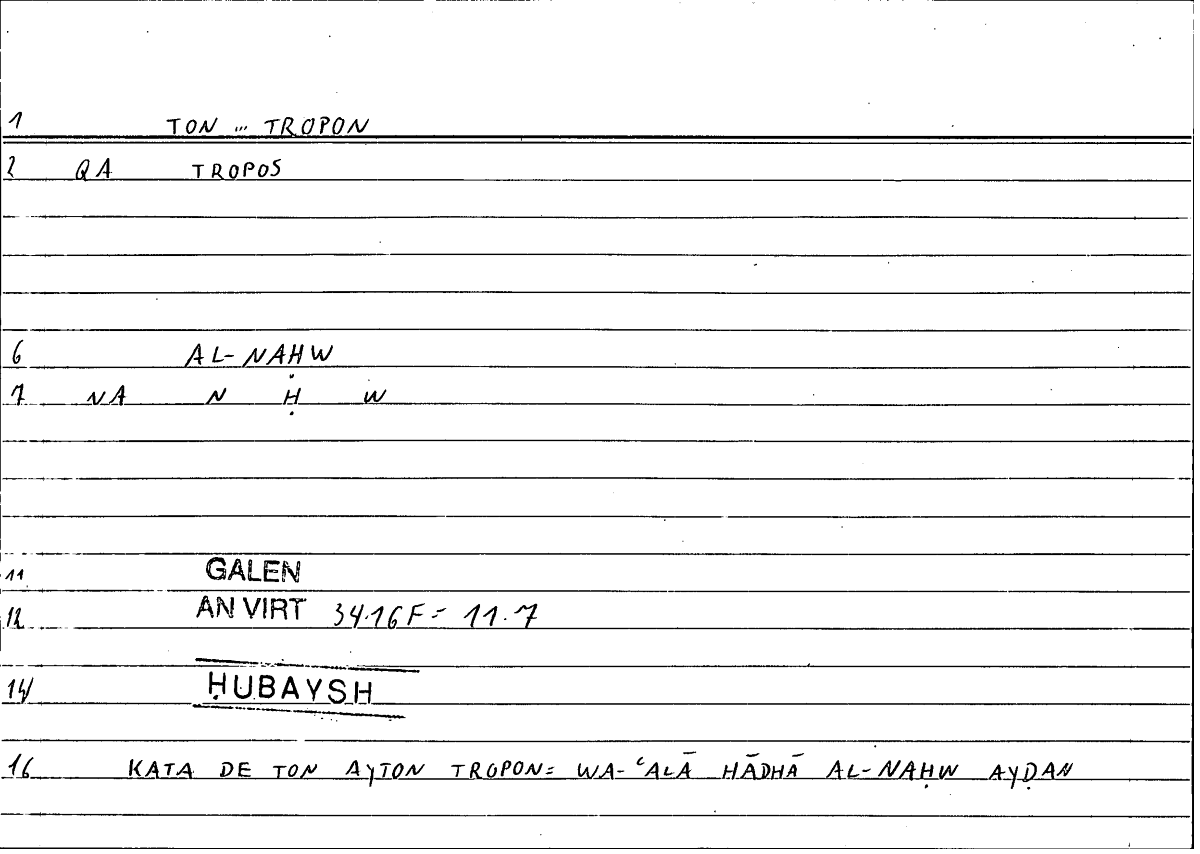 1 TON ... TROPON
2 QA TROPOS
6 AL-NAḤW
7 NA N Ḥ W
11 GALEN
12 AN VIRT 34.16F = 11.7
14 ḤUBAYSH
16 KATA DE TON AYTON TROPON = WA-ʿALĀ HĀDHĀ AL-NAḤW AYḌAN